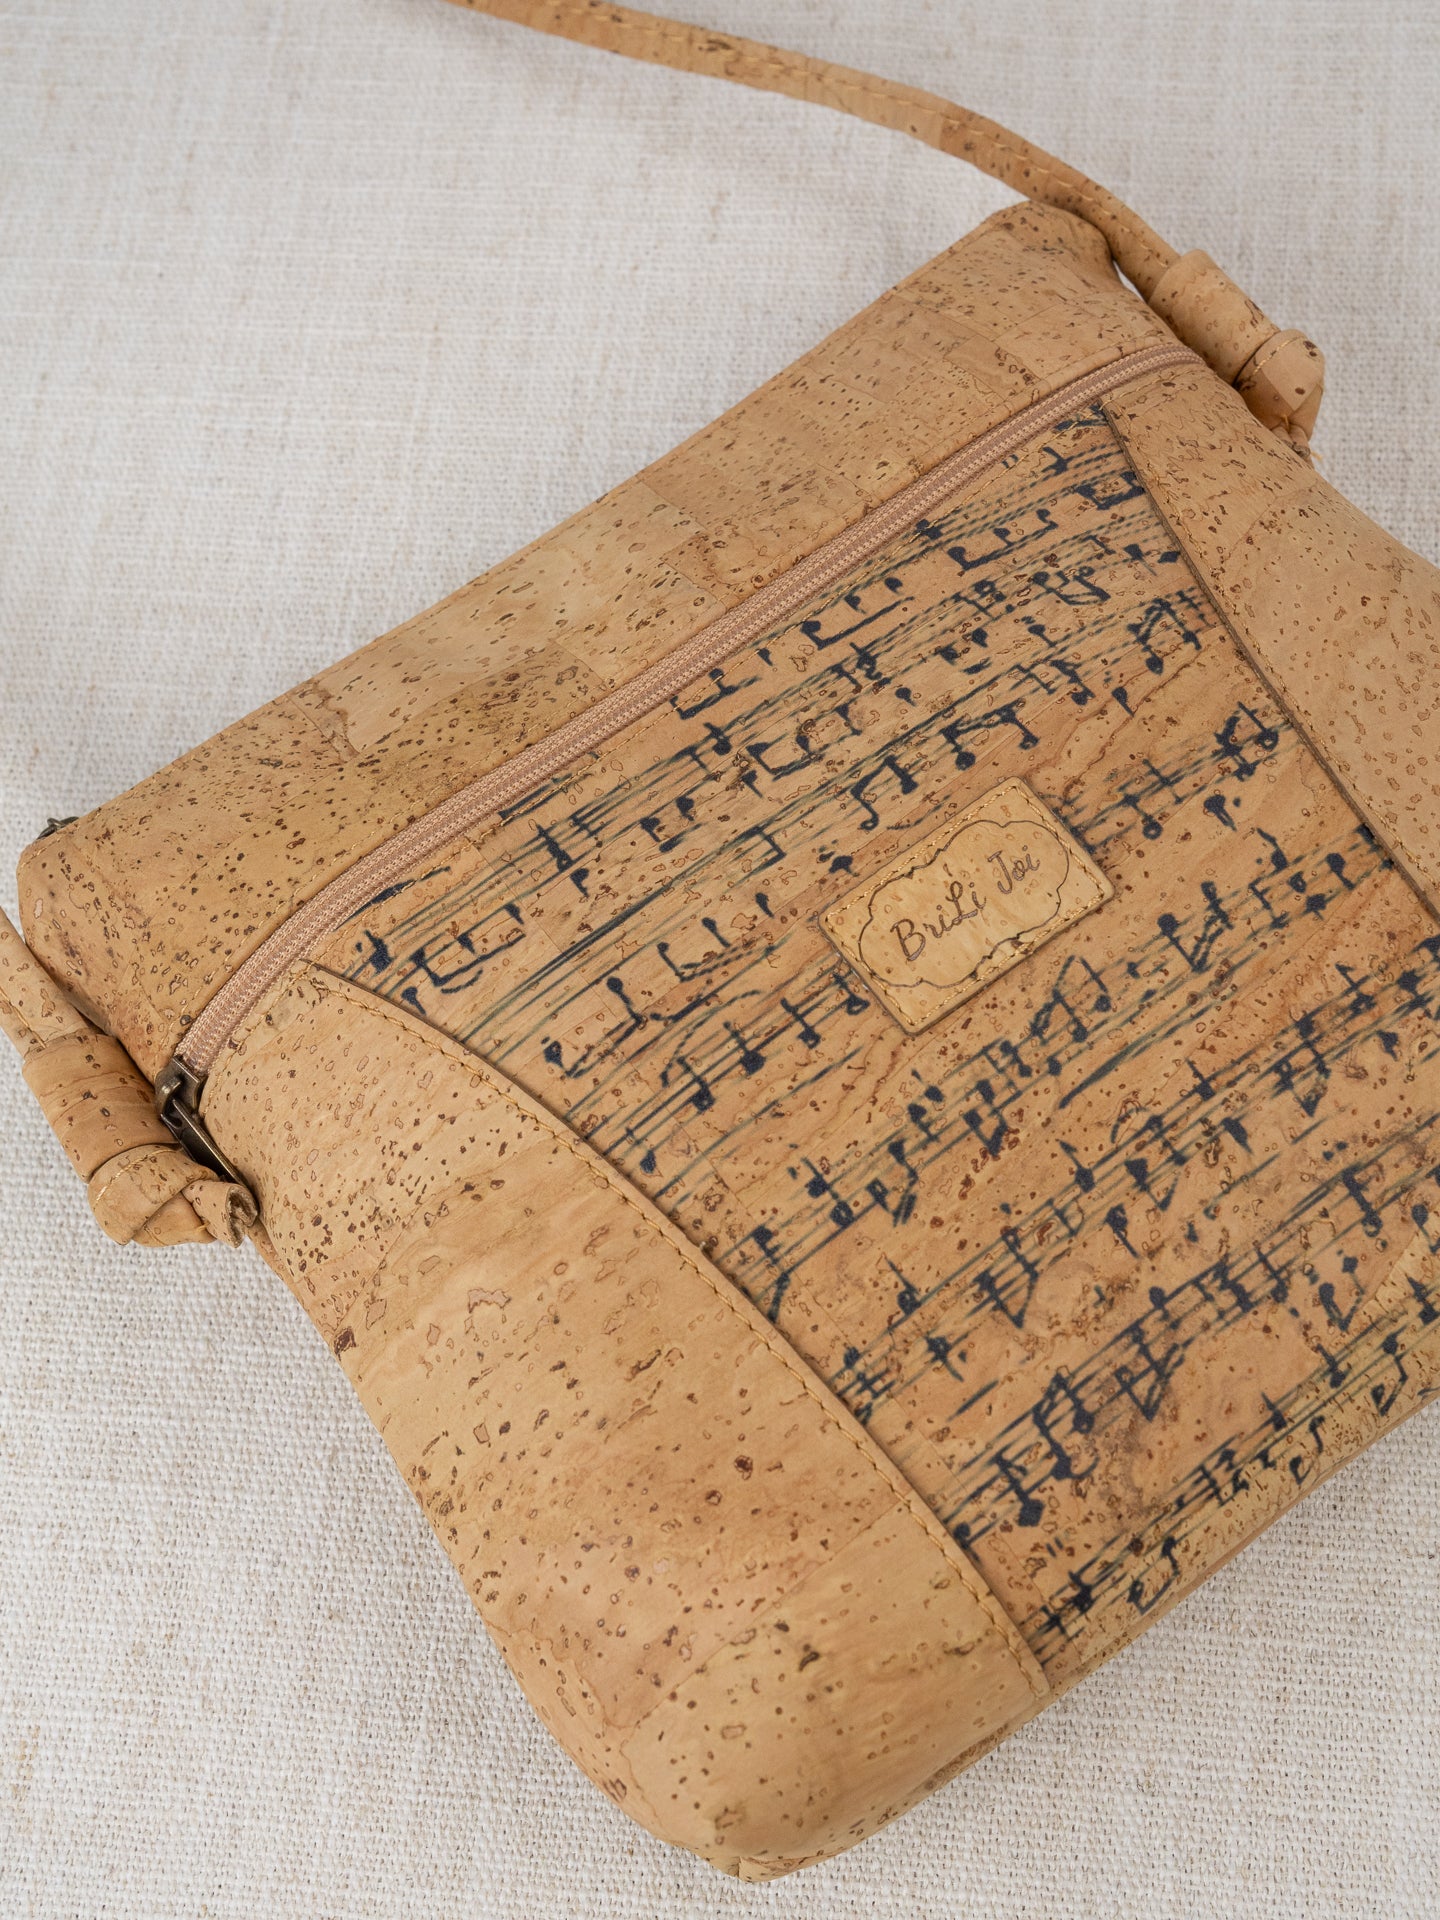 BriLi Joi